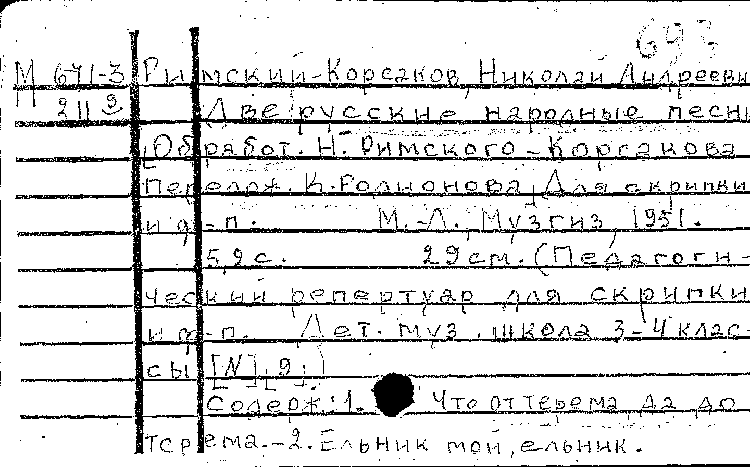 693
М 671-3 Римский-Корсаков, Николай Андрееви
2113 Две русские народные песни
[Обработ. Н. Римского-Корсакова
Перелож. К. Родионова] Для скрипки
и ф-п. М.-Л., Музгиз, 1951.
5,2с. 29см. (Педагоги-
ческий репертуар для скрипки
и ф-п. Дет. муз. школа 3-4 клас-
сы [N] [9].)
Содерж.: 1. Что от терема, да до
терема.-2. Ельник мой, ельник.